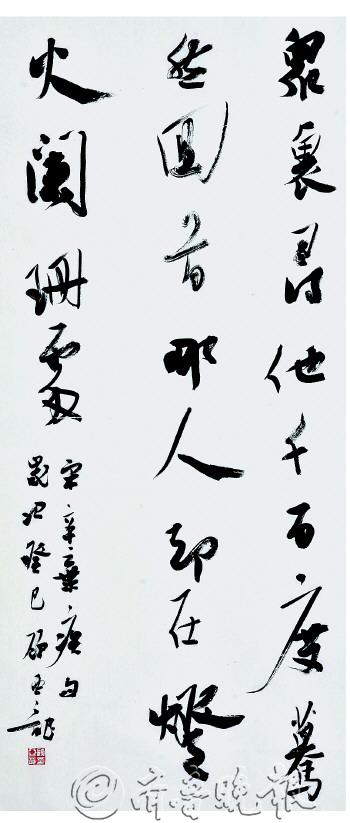 眾裏尋他千百度驀
然回首那人却在燈
火闌珊處
宋辛棄疾句
歲次癸巳顧亞龍
齊魯晚報